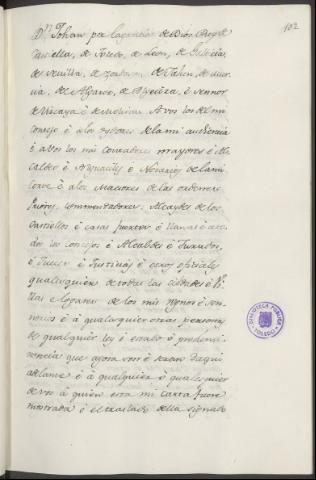 102
Dn. Johan por la gracia de Dios Rey de
Castiella, de Toledo, de Leon, de Galicia,
de Sevilla, de Cordova, de Jahen, de Mur
cia, de Algarve, de Algecira, è Sennor
de Vizcaya è de Molina. A vos los del mi
Consejo è à los oydores de la mi audiencia
è à vos los mis Contadores mayores è Al
caldes è Alguaciles è Notarios de la mi
Corte è à los Maestres de las ordenes
Priores, Commendadores, Alcaydes de los
Castiellos è casas fuertes è llanas è à to
dos los Consejos è Alcaldes è Jurados,
è Jueces è Justicias è otros oficiales
qualesquiere de todas las Cibdades è Vi
llas è logares de los mis Regnos è Sen
norios è à qualesquier otras personas
de qualquier ley è estado è prehemi
nencia que agora son è seran daqui
adelante è à qualquiera è qualesquier
de vos à quien esta mi carta fuere
mostrada è el traslado della signado
BIBLIOTECA PUBLICA
TOLEDO